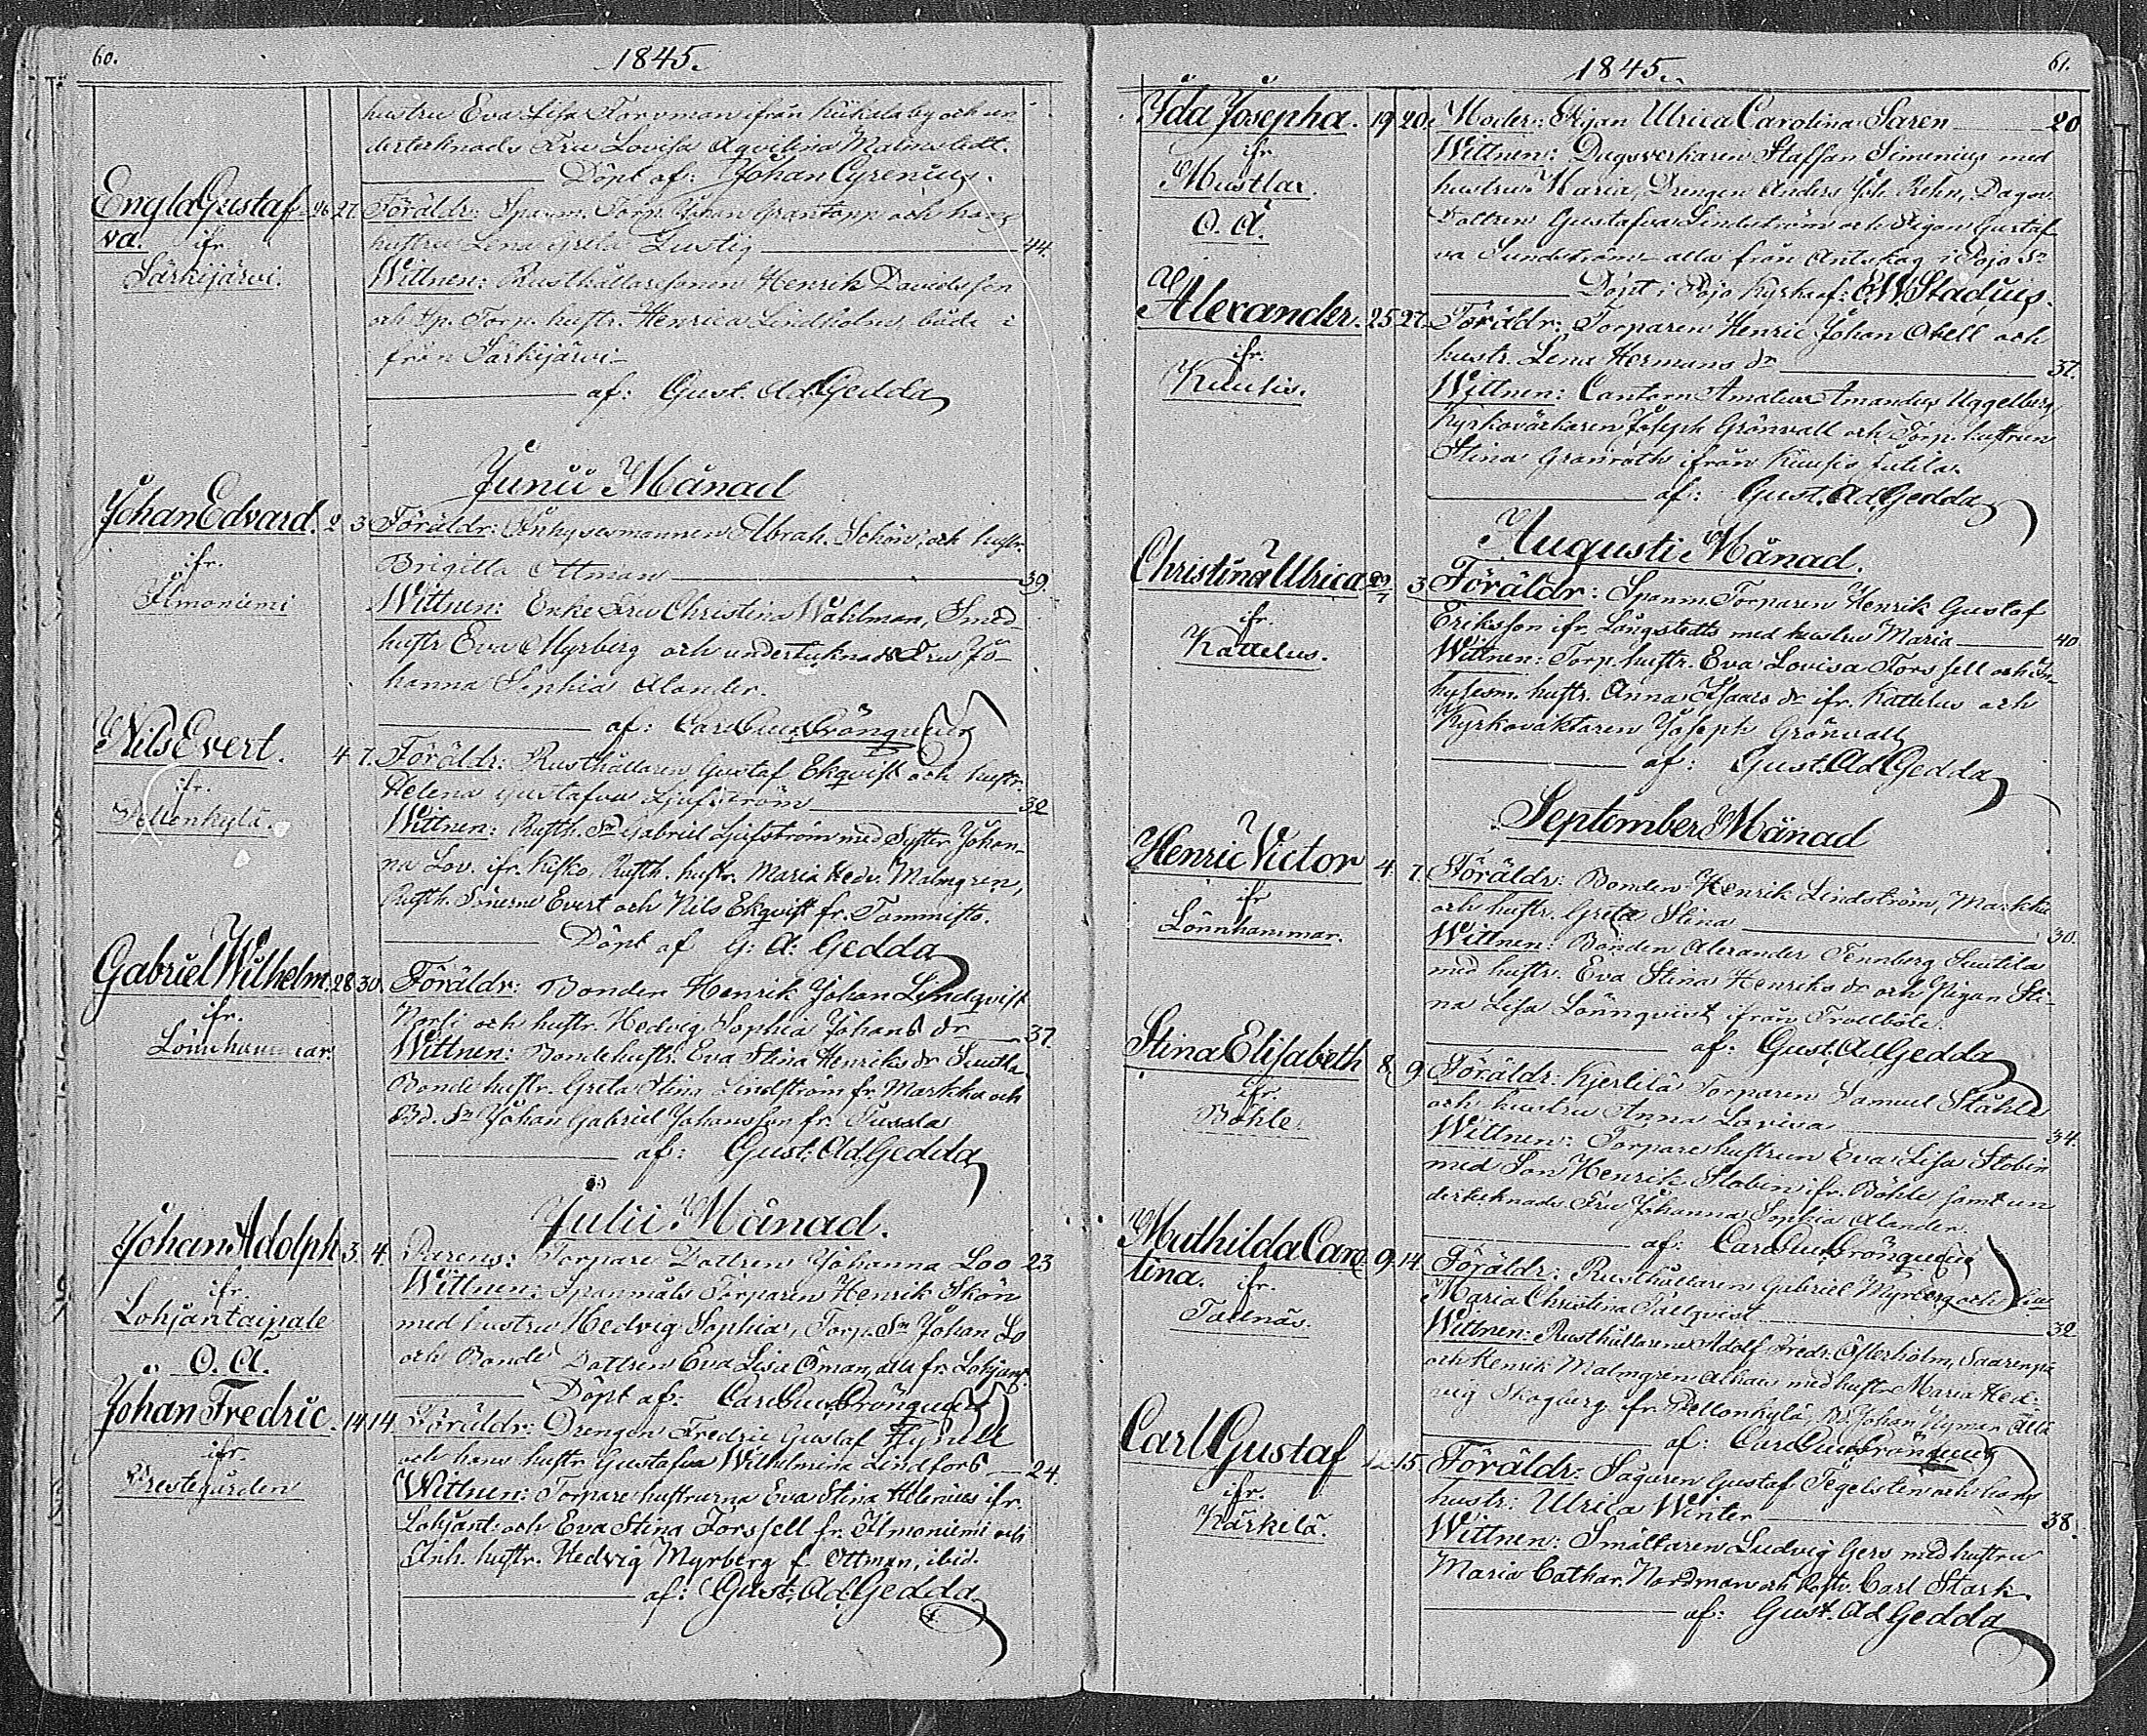 60.
1845.
hustru Eva Lisa Forsman ifrån Kükala by och un
dertecknads Fru Lovisa Aqvilina Malmstedt.
Döpt af: Johan Cyrenius.
Engla Gustaf 26 27. Föräldr: Spanm. Torp. Johan Grantopp och hans
va. ifr.
hustru Lena Greta Lustig 44.
Särkijärvi.
Wittnen: Rusthållaresonen Henrik Davidsson
och Sp. Torp. hustr. Henrica Lindholm, båda i
från Särkijärvi
af: Gust. Ad. Gedda
Junii Månad
Johan Edvard. 2 3 Föräldr: Inhysesmannen Abrah. Schön, och hustr.
ifr.
Brigitta Ottman 39.
Ilmoniemi
Wittnen: Enke Fru Christina Wahlman, Smed
hustr Eva Myrberg och undertecknads Fru Jo-
hanna Sophia Alander.
af: Carl Gust. Grönqvist
Nils Evert. 4 7. Föräldr: Rusthållaren Gustaf Ekqvist och hustr.
ifr.
Helena Gustafva Ljufström 32
Pellonkylä.
Wittnen: Rusth. Sn Gabriel Ljufström med Syster Johan-
na Lov. ifr. Kisko, Rusth. hustr. Maria Hedv. Malmgrén,
Rusth. Sönerne Evert och Nils Ekqvist fr. Tammisto.
Döpt af G: A: Gedda
Gabriel Wilhelm. 28 30. Föräldr: Bonden Henrik Johan Lindqvist
ifr.
Norfi och hustr. Hedvig Sophia Johans dr 37.
Lönnhammar.
Wittnen: Bondehustr. Eva Stina Henriks dr Suutila
Bonde hustr. Greta Stina Lindström fr. Markka och
Bd. Sn Johan Gabriel Johansson fr. Tussla
af: Gust. Ad. Gedda
Julii Månad.
Johan Adolph 3. 4. Parens: Torpare Dottren Johanna Loo 23
ifr.
Wittnen: Spanmåls Torparen Henrik Skön
Lohjantaipale
med hustru Hedvig Sophia, Torp. Sn Johan Lo
O. Ä.
och Bonde Dottren Eva Lisa Öman, alla fr. Lohjant.
Döpt af: Carl Gust. Grönqvist
Johan Fredric. 14 14. Föräldr: Drengen Fredric Gustaf
ifr.
och hans hustr. Gustafva Wilhelmina Lindfors 24.
Prestegården
Wittnen: Torpare hustrurna Eva Stina Helenius ifr.
Lohjant: och Eva Stina Forssell fr. Ilmoniemi och
Inh. hustr. Hedvig Myrberg f. Ottman, ibid.
af: Gust. Ad. Gedda
1845.
61.
Ida Josepha. 19 20. Moder: Pigan Ulrica Carolina Saren 20
ifr.
Wittnen: Dagsverkaren Staffan Simenius med
Mustlax.
hustru Maria, Drengen Anders Joh. Rehn, Dagsv.
O. Ä.
Dottren Gustafva Lindström och Pigan Gustaf
va Sundström alla från Antskog i Pojo Sn
Döpt i Pojo kyrka af: E. W. Stadius.
Alexander. 25 27. Föräldr: Torparen Henric Johan Abell och
ifr.
hustr. Lena Hermans dr 37.
Kuusis.
Wittnen: Cantorn Amadeus Amandus Uggelberg
Kyrkovärkaren Joseph Grönvall och Torp. hustrun
Stina Granroth ifrån Kuusis
af: Gust. Ad. Gedda
Augusti Månad.
Christina Ulrica. 29/7 3 Föräldr: Spanm. Torparen Henrik Gustaf
ifr.
Eriksson ifr. Långstedts med hustru Maria 40
Kattelus.
Wittnen: Torp. hustr. Eva Lovisa Forssell och In-
hysesm. hustr. Anna Isaacs dr ifr. Kattelus och
Kyrkovaktaren Joseph Grönvall
af: Gust. Ad. Gedda
September Månad
Henric Victor 4. 7. Föräldr: Bonden Henrik Lindström, Markka
ifr
och hustr. Greta Stina 30.
Lönnhammar.
Wittnen: Bonden Alexander Tennberg Suutila
med hustr. Eva Stina Henriks dr och Pigan Sti-
na Lisa Lönnqvist ifrån Trollböle.
af: Gust. Ad. Gedda
Stina Elisabeth 8. 9. Föräldr: Kjerkilä Torparen Samuel Ståhle
ifr.
och hustru Anna Lovisa 34.
Böhle.
Wittnen: Torpare hustrun Eva Lisa Stobin
med Son Henrik Stobin ifr. Böhle samt un
dertecknads Fru Johanna Sophia Alander.
af: Carl Gust. Grönqvist
Mathilda Caro 9. 14. Föräldr: Rusthållaren Gabriel Myrberg och hus
lina. ifr.
Maria Christina Tallqvist 32
Tallnäs.
Wittnen: Rusthållarene Adolf Fredr. Österholm, Saarenpä
och Henrik Malmgrén Ahais med hustr. Maria Hed-
vig Skogberg fr. Pellonkylä, Bd. Johan Nyman
af: Carl Gust. Grönqvist
Carl Gustaf 12 15. Föräldr: Sågaren Gustaf Tegelsten och hans
ifr.
hustr: Ulrica Winter 38.
Kärkelä.
Wittnen: Smältaren Ludvig Gers med hustru
Maria Cathar. Nordman och Carl Stark.
af: Gust. Ad Gedda